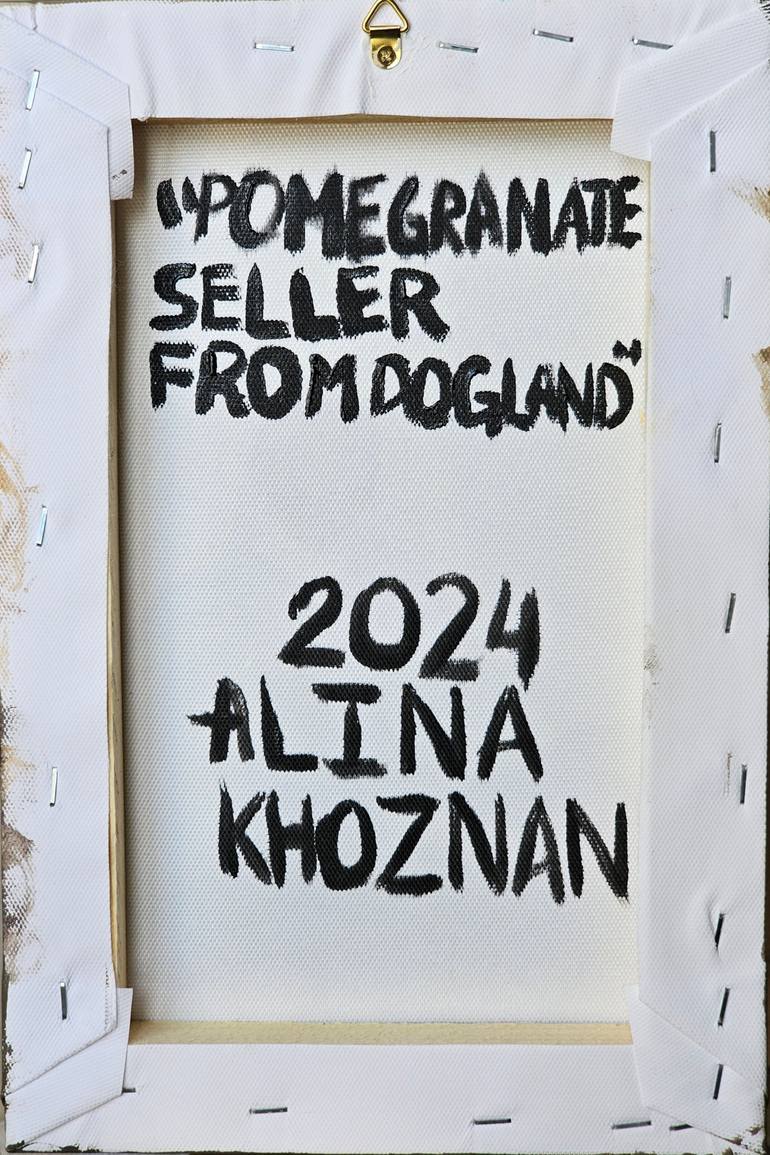 "POMEGRANATE
SELLER
FROM DOGLAND"
2024
ALINA
KHOZNAN